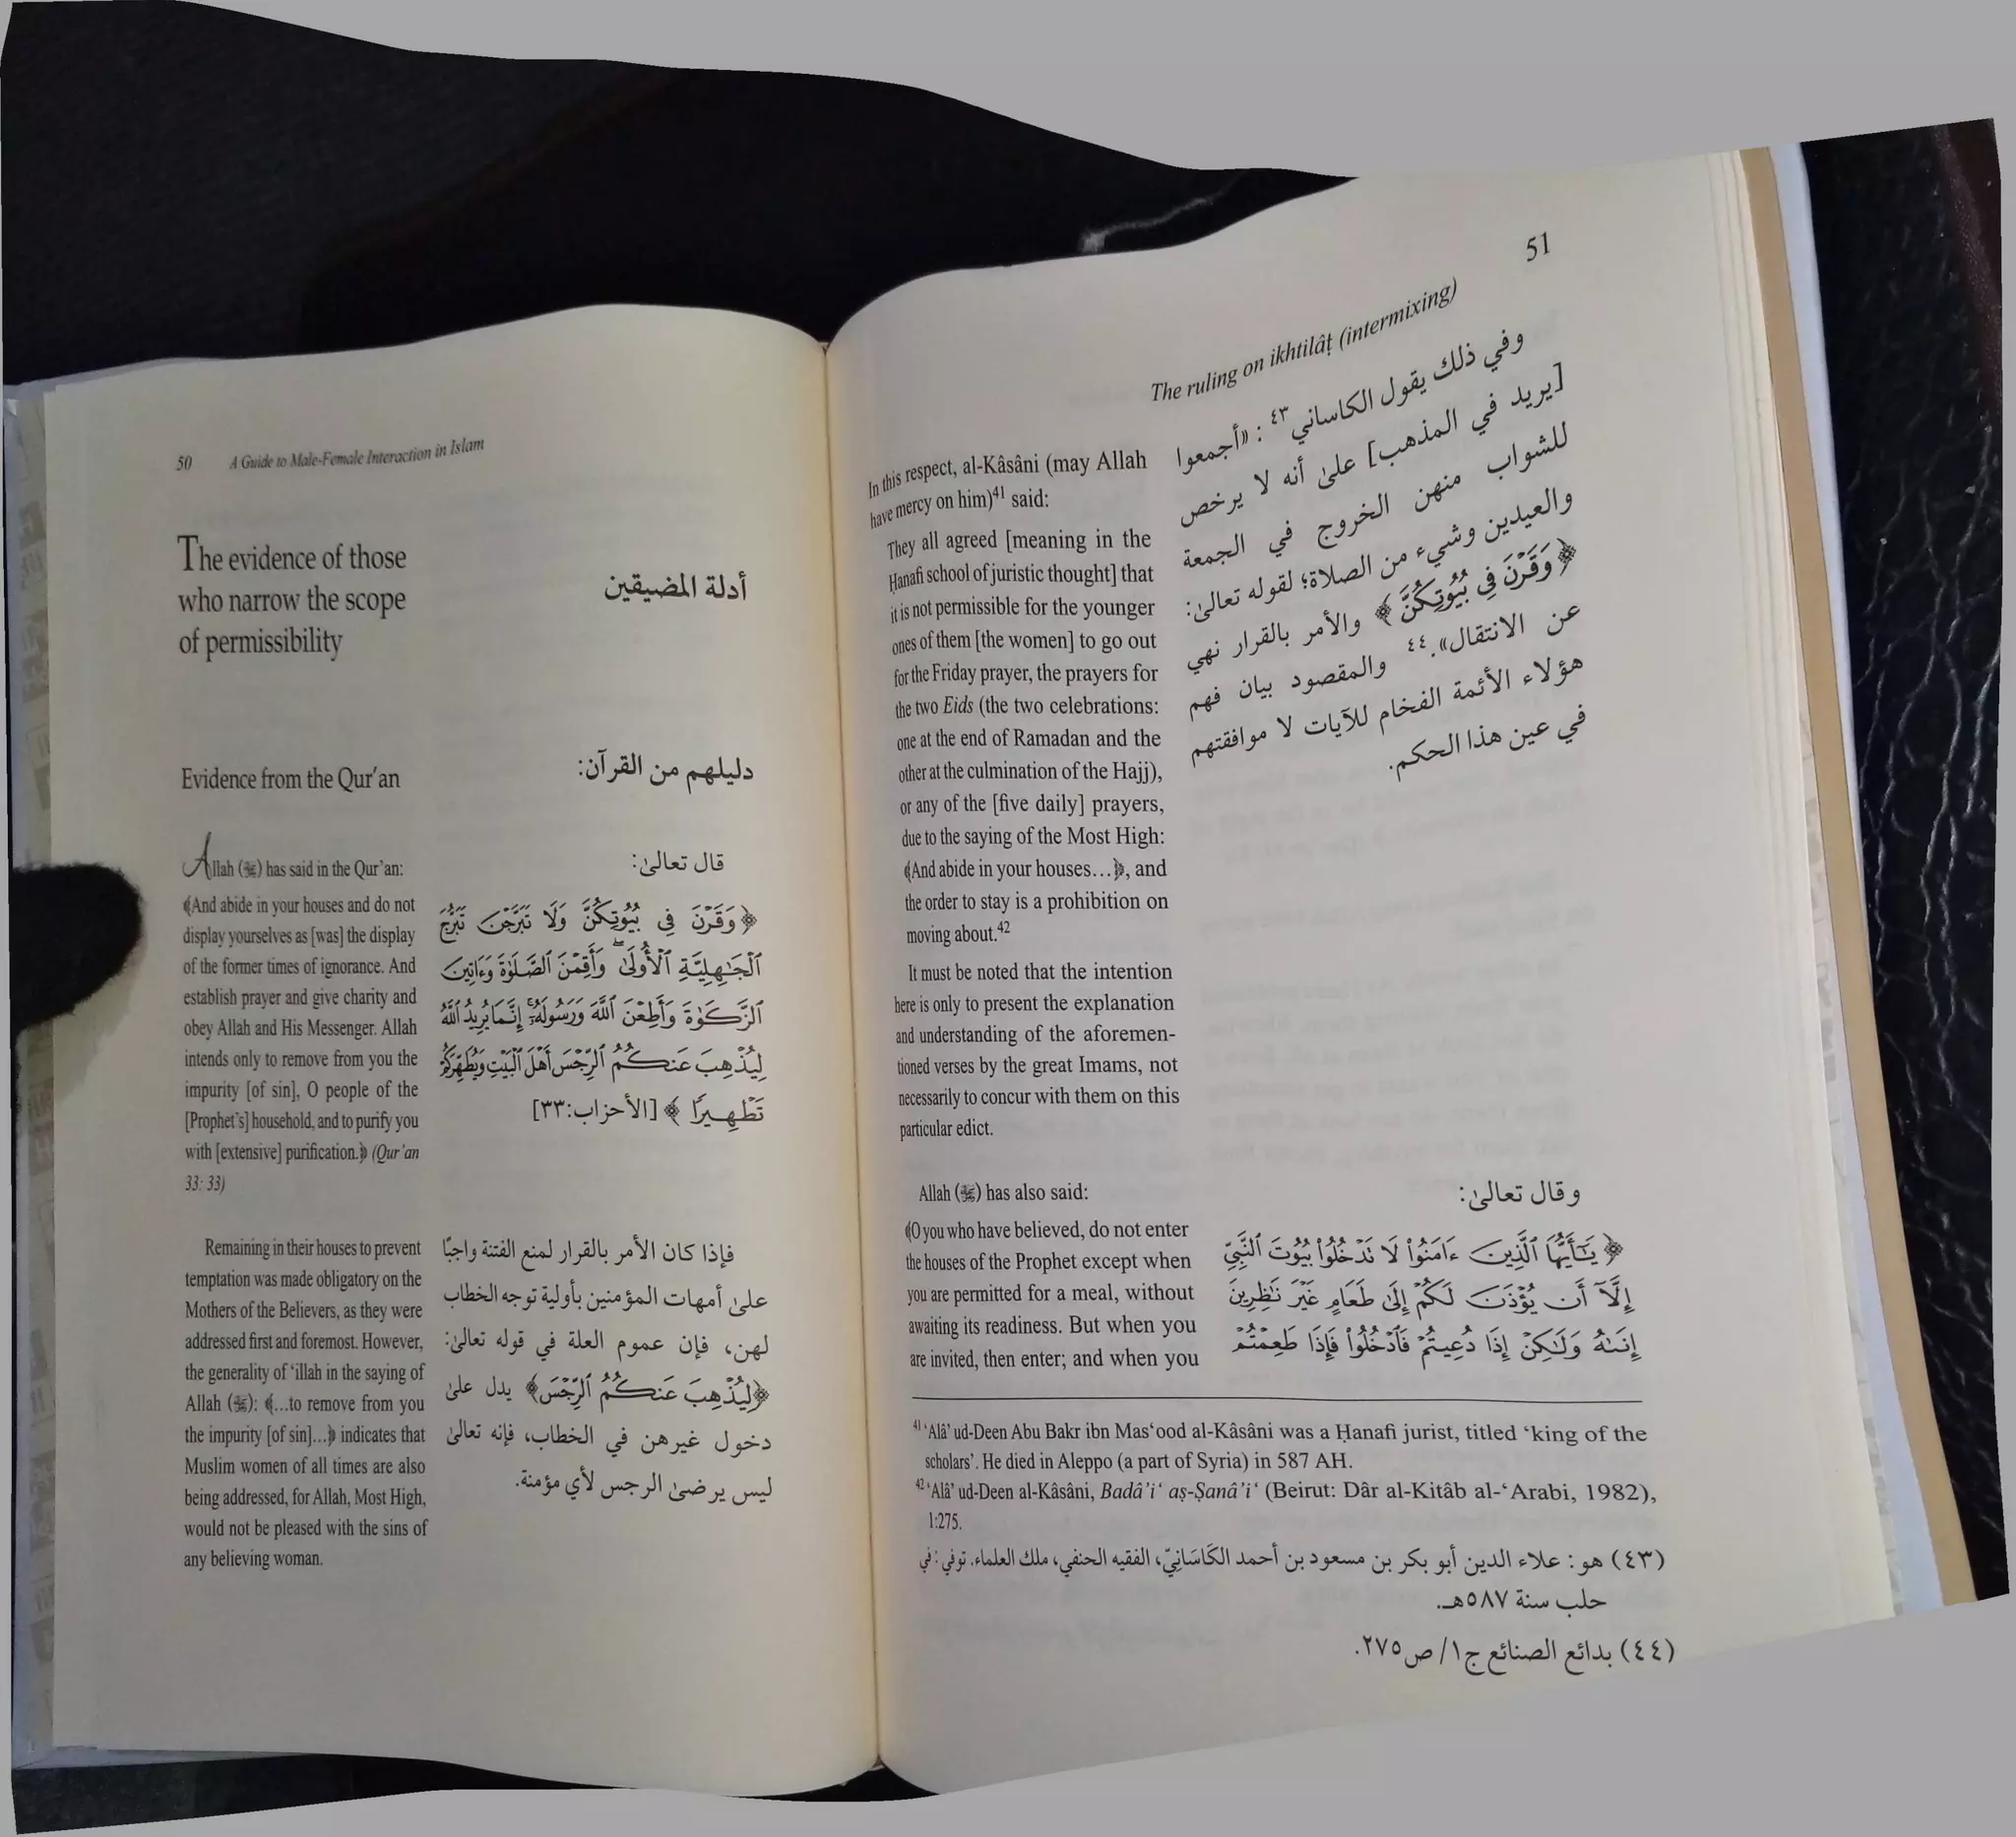 50 A Guide to Male-Female Interaction in Islam
The evidence of those
who narrow the scope
of permissibility
أدلة المضيقين
Evidence from the Qur'an
دليلهم من القرآن:
Allah (ﷻ) has said in the Qur'an:
﴾And abide in your houses and do not
display yourselves as [was] the display
of the former times of ignorance. And
establish prayer and give charity and
obey Allah and His Messenger. Allah
intends only to remove from you the
impurity [of sin], O people of the
[Prophet's] household, and to purify you
with [extensive] purification.﴿ (Qur'an
33: 33)
قال تعالىٰ:
﴿وَقَرْنَ فِي بُيُوتِكُنَّ وَلَا تَبَرَّجْنَ تَبَرُّجَ
ٱلْجَٰهِلِيَّةِ ٱلْأُولَىٰ ۖ وَأَقِمْنَ ٱلصَّلَوٰةَ وَءَاتِينَ
ٱلزَّكَوٰةَ وَأَطِعْنَ ٱللَّهَ وَرَسُولَهُۥٓ ۚ إِنَّمَا يُرِيدُ ٱللَّهُ
لِيُذْهِبَ عَنكُمُ ٱلرِّجْسَ أَهْلَ ٱلْبَيْتِ وَيُطَهِّرَكُمْ
تَطْهِيرًا ﴾ [الأحزاب:٣٣]
Remaining in their houses to prevent
temptation was made obligatory on the
Mothers of the Believers, as they were
addressed first and foremost. However,
the generality of 'illah in the saying of
Allah (ﷻ): ﴾…to remove from you
the impurity [of sin]…﴿ indicates that
Muslim women of all times are also
being addressed, for Allah, Most High,
would not be pleased with the sins of
any believing woman.
فإذا كان الأمر بالقرار لمنع الفتنة واجبًا
علىٰ أمهات المؤمنين بأولية توجه الخطاب
لهن، فإن عموم العلة في قوله تعالىٰ:
﴿لِيُذْهِبَ عَنكُمُ ٱلرِّجْسَ﴾ يدل علىٰ
دخول غيرهن في الخطاب، فإنه تعالىٰ
ليس يرضىٰ الرجس لأي مؤمنة.
The ruling on ikhtilâṭ (intermixing) 51
In this respect, al-Kâsâni (may Allah
have mercy on him)41 said:
They all agreed [meaning in the
Ḥanafi school of juristic thought] that
it is not permissible for the younger
ones of them [the women] to go out
for the Friday prayer, the prayers for
the two Eids (the two celebrations:
one at the end of Ramadan and the
other at the culmination of the Hajj),
or any of the [five daily] prayers,
due to the saying of the Most High:
﴾And abide in your houses…﴿, and
the order to stay is a prohibition on
moving about.42
It must be noted that the intention
here is only to present the explanation
and understanding of the aforemen-
tioned verses by the great Imams, not
necessarily to concur with them on this
particular edict.
وفي ذلك يقول الكاساني٤٣ : «أجمعوا
[يريد في المذهب] علىٰ أنه لا يرخص
للشواب منهن الخروج في الجمعة
والعيدين وشيء من الصلاة؛ لقوله تعالىٰ:
﴿وَقَرْنَ فِي بُيُوتِكُنَّ﴾ والأمر بالقرار نهي
عن الانتقال».٤٤ والمقصود بيان فهم
هؤلاء الأئمة الفخام للآيات لا موافقتهم
في عين هذا الحكم.
Allah (ﷻ) has also said:
﴾O you who have believed, do not enter
the houses of the Prophet except when
you are permitted for a meal, without
awaiting its readiness. But when you
are invited, then enter; and when you
وقال تعالىٰ:
﴿ يَٰٓأَيُّهَا ٱلَّذِينَ ءَامَنُوا۟ لَا تَدْخُلُوا۟ بُيُوتَ ٱلنَّبِيِّ
إِلَّآ أَن يُؤْذَنَ لَكُمْ إِلَىٰ طَعَامٍ غَيْرَ نَٰظِرِينَ
إِنَىٰهُ وَلَٰكِنْ إِذَا دُعِيتُمْ فَٱدْخُلُوا۟ فَإِذَا طَعِمْتُمْ
41 'Alâ' ud-Deen Abu Bakr ibn Mas'ood al-Kâsâni was a Ḥanafi jurist, titled 'king of the
scholars'. He died in Aleppo (a part of Syria) in 587 AH.
42 'Alâ' ud-Deen al-Kâsâni, Badâ'i' aṣ-Ṣanâ'i' (Beirut: Dâr al-Kitâb al-'Arabi, 1982),
1:275.
(٤٣) هو: علاء الدين أبو بكر بن مسعود بن أحمد الكَاسَانِيّ، الفقيه الحنفي، ملك العلماء. توفي: في
حلب سنة ٥٨٧هـ.
(٤٤) بدائع الصنائع ج١/ ص٢٧٥.